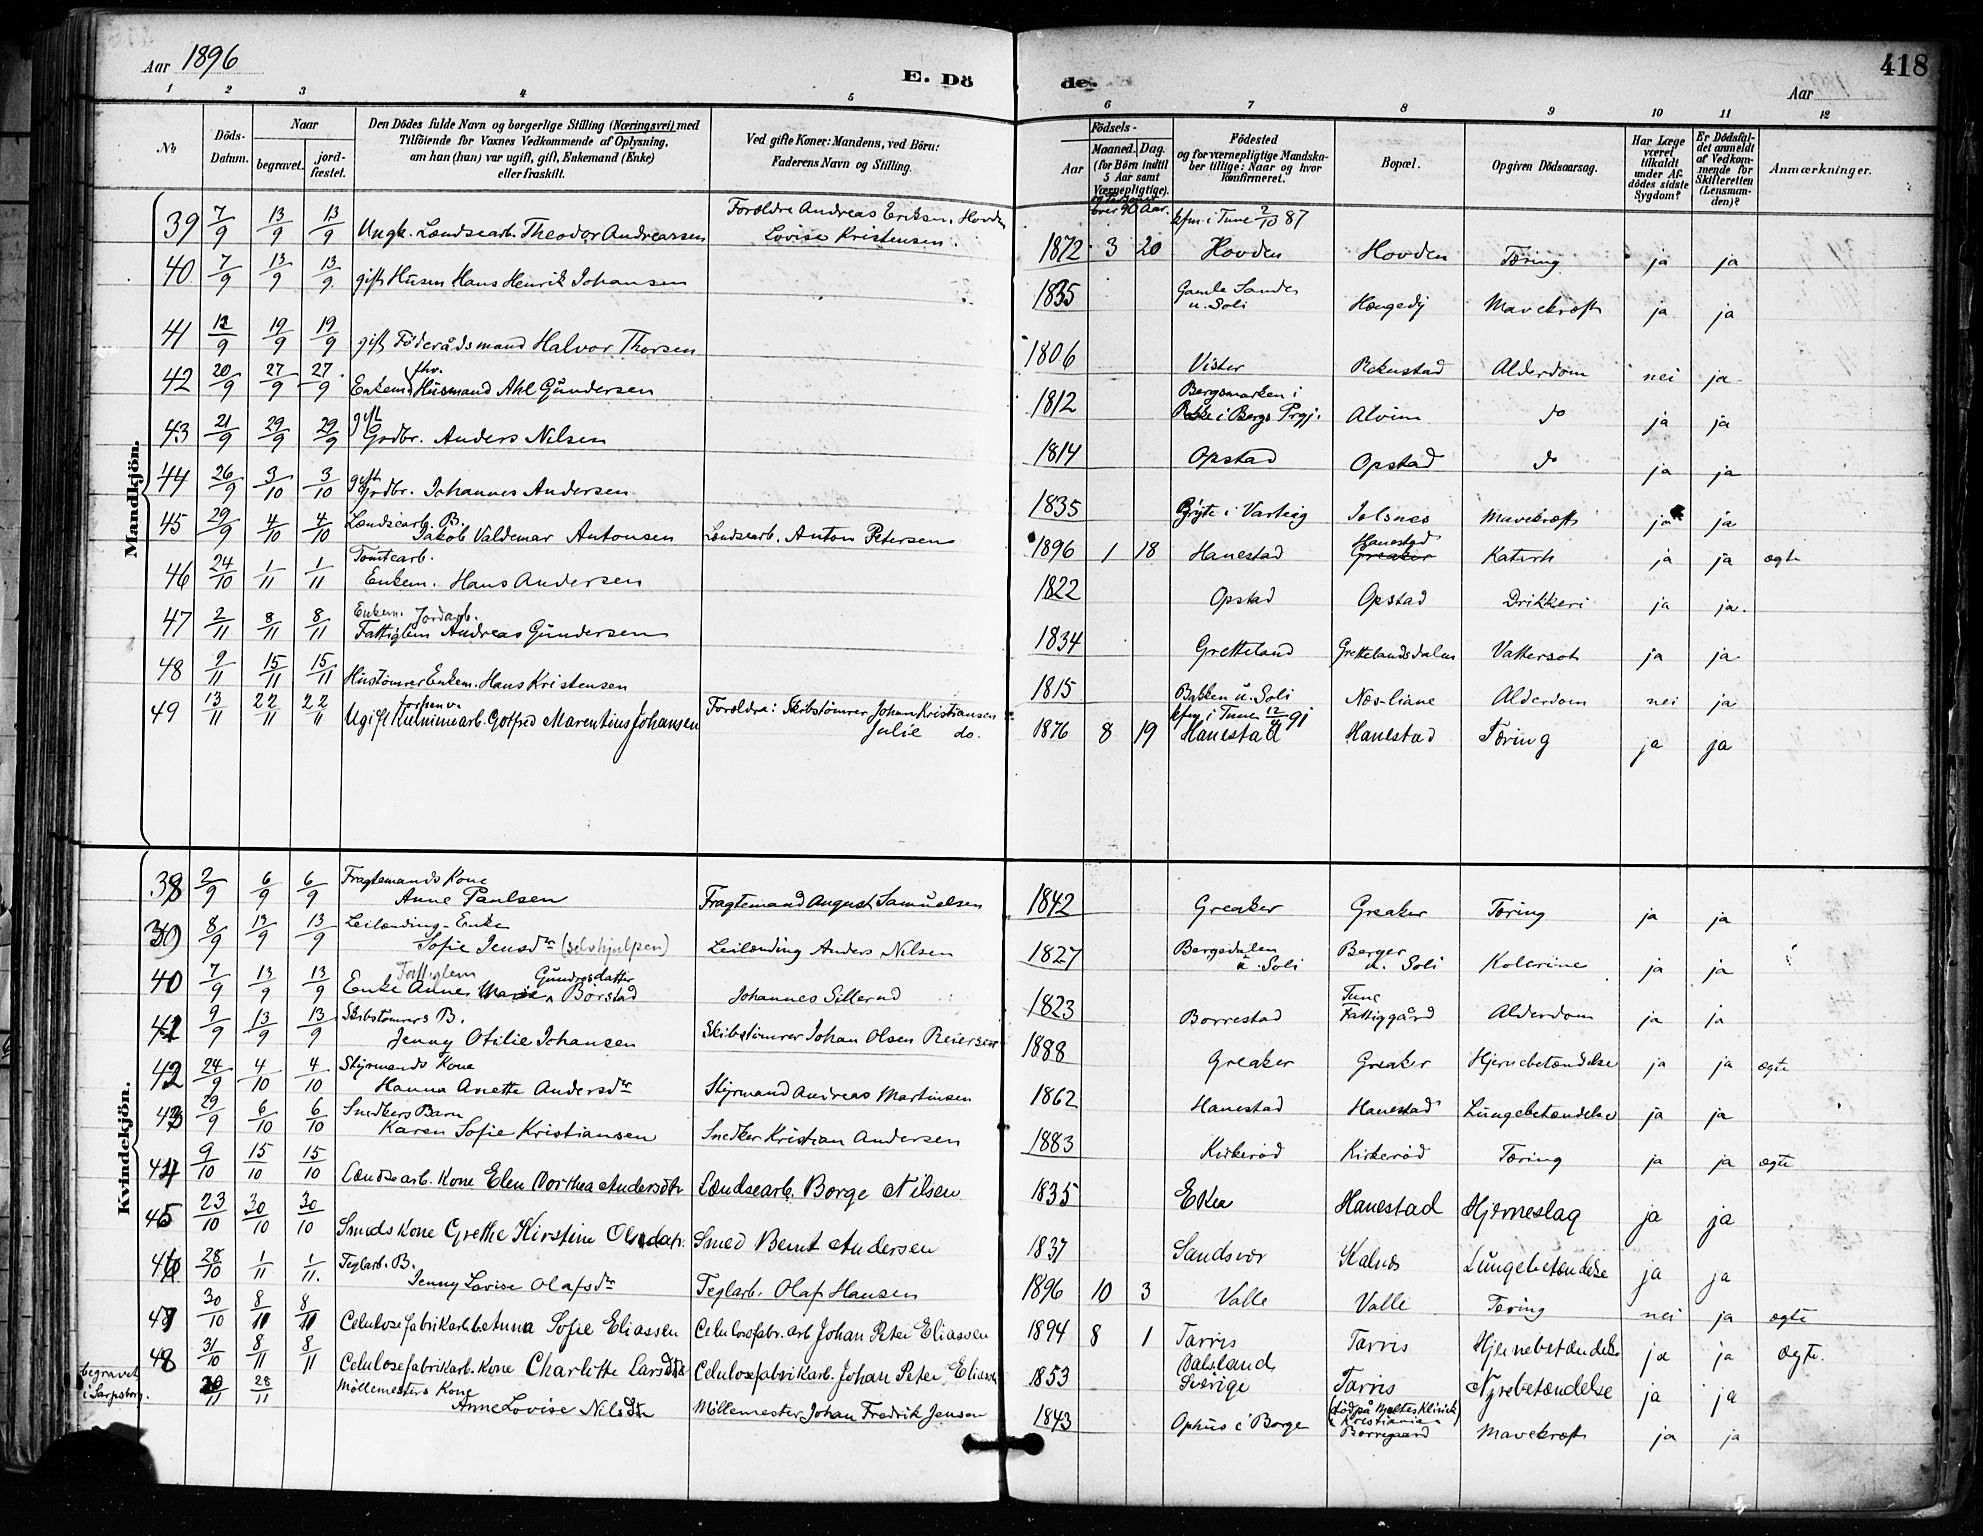 Aar 1896
E. Dö
de.
418
Aar
1 2 3 4 5 6 7 8 9 10 11 12
No
Döds-Datum.
Naar
begravet.
jord-fæstet.
Den Dödes fulde Navn og borgerlige Stilling (Næringsvei) med
Tilföiende for Voxnes Vedkommende af Oplysning,
om han (hun) var ugift, gift, Enkemand (Enke)
eller fraskilt.
Ved gifte Koner: Mandens, ved Börn:
Faderens Navn og Stilling.
Födsels-
Aar
Maaned. Dag.
(for Börn indtil
5 Aar samt
Værnepligtige).
over 90 Aar.
Födested
og for værnepligtige Mandska-
ber tillige: Naar og hvor
konfirmeret.
Bopæl.
Opgiven Dödsaarsag.
Har Læge
været
tilkaldt
under Af-
dödes sidste
Sygdom?
Er Dödsfal-
det anmeldt
af Vedkom-
mende for
Skifteretten
(Lensman-
den)?
Anmærkninger.
Mandkjön.
39 7/9 13/9 13/9 Ungk. Lændsearb. Theodor Andreassen Forældre Andreas Eriksen, Hovden Lovise Kristensen. 1872 3 20 kfm. i Tune 2/10 87 Hovden Hovden Tæring ja ja
40 7/9 13/9 13/9 gift Husm Hans Henrik Johansen 1835 Gamle Sandes u. Soli Hængedy Mavekræft ja ja
41 12/9 19/9 19/9 gift Föderådsmand Halvor Thorsen 1806 Vister Rekustad Alderdom nei ja
42 20/9 27/9 27/9 Enkem. fhv. Husmand Ahl Gundersen 1812 Bergsmarken i Rakke i Bergs Prgj. Alvim do ja ja
43 21/9 29/9 29/9 gift Grdbr. Anders Nilsen 1814 Opstad Opstad do ja ja
44 26/9 3/10 3/10 gift Grdbr. Johannes Andersen 1835 Gryte i Varteig Jolsnes Mavekræft ja ja
45 29/9 4/10 4/10 Lændsearb. B. Jakob Valdemar Antonsen Lændsearb. Anton Petersen 1896 1 18 Hanestad Hanestad Greaker Katarrh ja ja ægte
46 24/10 1/11 1/11 Tomtearb. Enkem. Hans Andersen 1822 Opstad Opstad Drikkeri ja ja.
47 2/11 8/11 8/11 Enkem. Jordarb. Fattiglem Andreas Gundersen 1834 Gretteland Grettelandsdalen Vattersot ja ja
48 9/11 15/11 15/11 Hustömrer Enkem. Hans Kristensen 1815 Bakken u. Soli Næs-liane Alderdom nei ja
49 13/11 22/11 22/11 Ugift forhenv. Kulminearb. Gotfred Marentius Johansen Forældre: Skibstömrer Johan Kristiansen Julie do. 1876 8 19 kfm. i Tune 12/4 91 Hanestad Hanestad Tæring ja ja
Kvindekjön.
38 2/9 6/9 6/9 Fragtemands Kone Anne Paulsen Fragtemand August Samuelsen 1842 Greaker Greaker Tæring ja ja
39 8/9 13/9 13/9 Leilænding-Enke Sofie Jensdtr (selvhjulpen) Leilænding Anders Nilsen 1827 Bergsdalen u. Soli Berger u. Soli Kolerine ja ja
40 7/9 13/9 13/9 Fattiglem Enke Anne Marie Gundersdatter Börstad Johannes Sillerud 1823 Borrestad Tune Fattiggård Alderdom ja ja
41 9/9 13/9 13/9 Skibstömrers B. Jenny Otilie Johansen Skibstömrer Johan Olsen Reiersen 1888 Greaker Greaker Hjernebetændelse ja ja ægte
42 24/9 4/10 4/10 Styrmands Kone Hanna Anette Andersdtr Styrmand Andreas Martinsen 1862 Hanestad Hanestad Lungebetændelse ja ja
43 29/9 6/10 6/10 Snedkers Barn Karen Sofie Kristiansen Snedker Kristian Andersen 1883 Kirkeröd Kirkeröd Tæring ja ja ægte
44 9/10 15/10 15/10 Lændsearb. Kone Elen Dorthea Andersdtr Lændsearb. Borge Nilsen 1835 Eken Hanestad Hjerneslag ja ja
45 23/10 30/10 30/10 Smeds Kone Grethe Kirstine Olsdatr. Smed Bernt Andersen 1837 Sandsvær Kalnes Lungebetændelse ja ja
46 28/10 1/11 1/11. Teglarb. B. Jenny Lovise Olafsdtr Teglarb. Olaf Hansen 1896 10 3 Valle Valle Tæring nei ja ægte
47 30/10 8/11 8/11 Celulosefabrikarb. Anna Sofie Eliassen Celulosefabr. arb Johan Peter Eliassen 1894 8 1 Tarris Tarris Hjernebetændelse ja ja Ægte.
48 31/10 8/11 8/11 Celulosefabrikarb. Kone Charlotte Larsdtr Celulosefabrikarb. Johan Peter Eliassen 1853 Dalsland Sverige Tarris Nyrebetændelse ja ja
begravet i Sarpsborg. 20/11 28/11 Möllemesters Kone Anne Lovise Nilsdtr Möllemester Johan Fredrik Jensen 1843 Ophus i Borge (död på Maltes Klinik i Kristiania) Borregaard Mavekræft ja ja